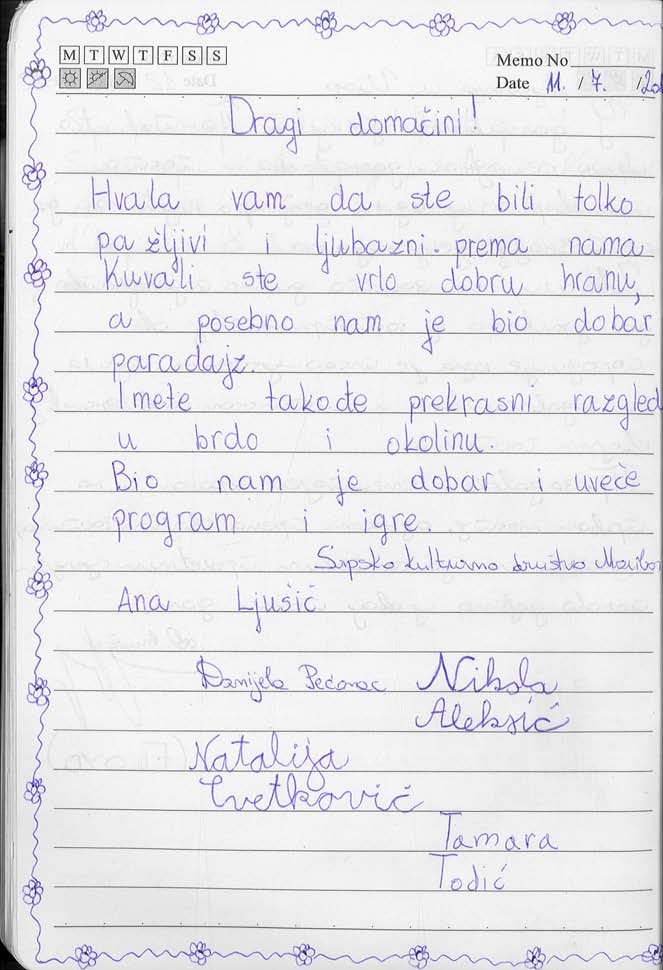 M T W T F S S
Memo No
Date 11. / 7. /20
Dragi domačini!
Hvala vam da ste bili tolko
pažljivi i ljubazni prema nama.
Kuvali ste vrlo dobru hranu,
a posebno nam je bio dobar
paradajz.
Imete takođe prekrasni razgled
u brdo i okolinu.
Bio nam je dobar i uveče
program i igre.
Srpsko kulturno društvo Maribor
Ana Ljušić
Danijela Pećanac Nikola
Aleksić
Natalija
Cvetković
Tamara
Todić